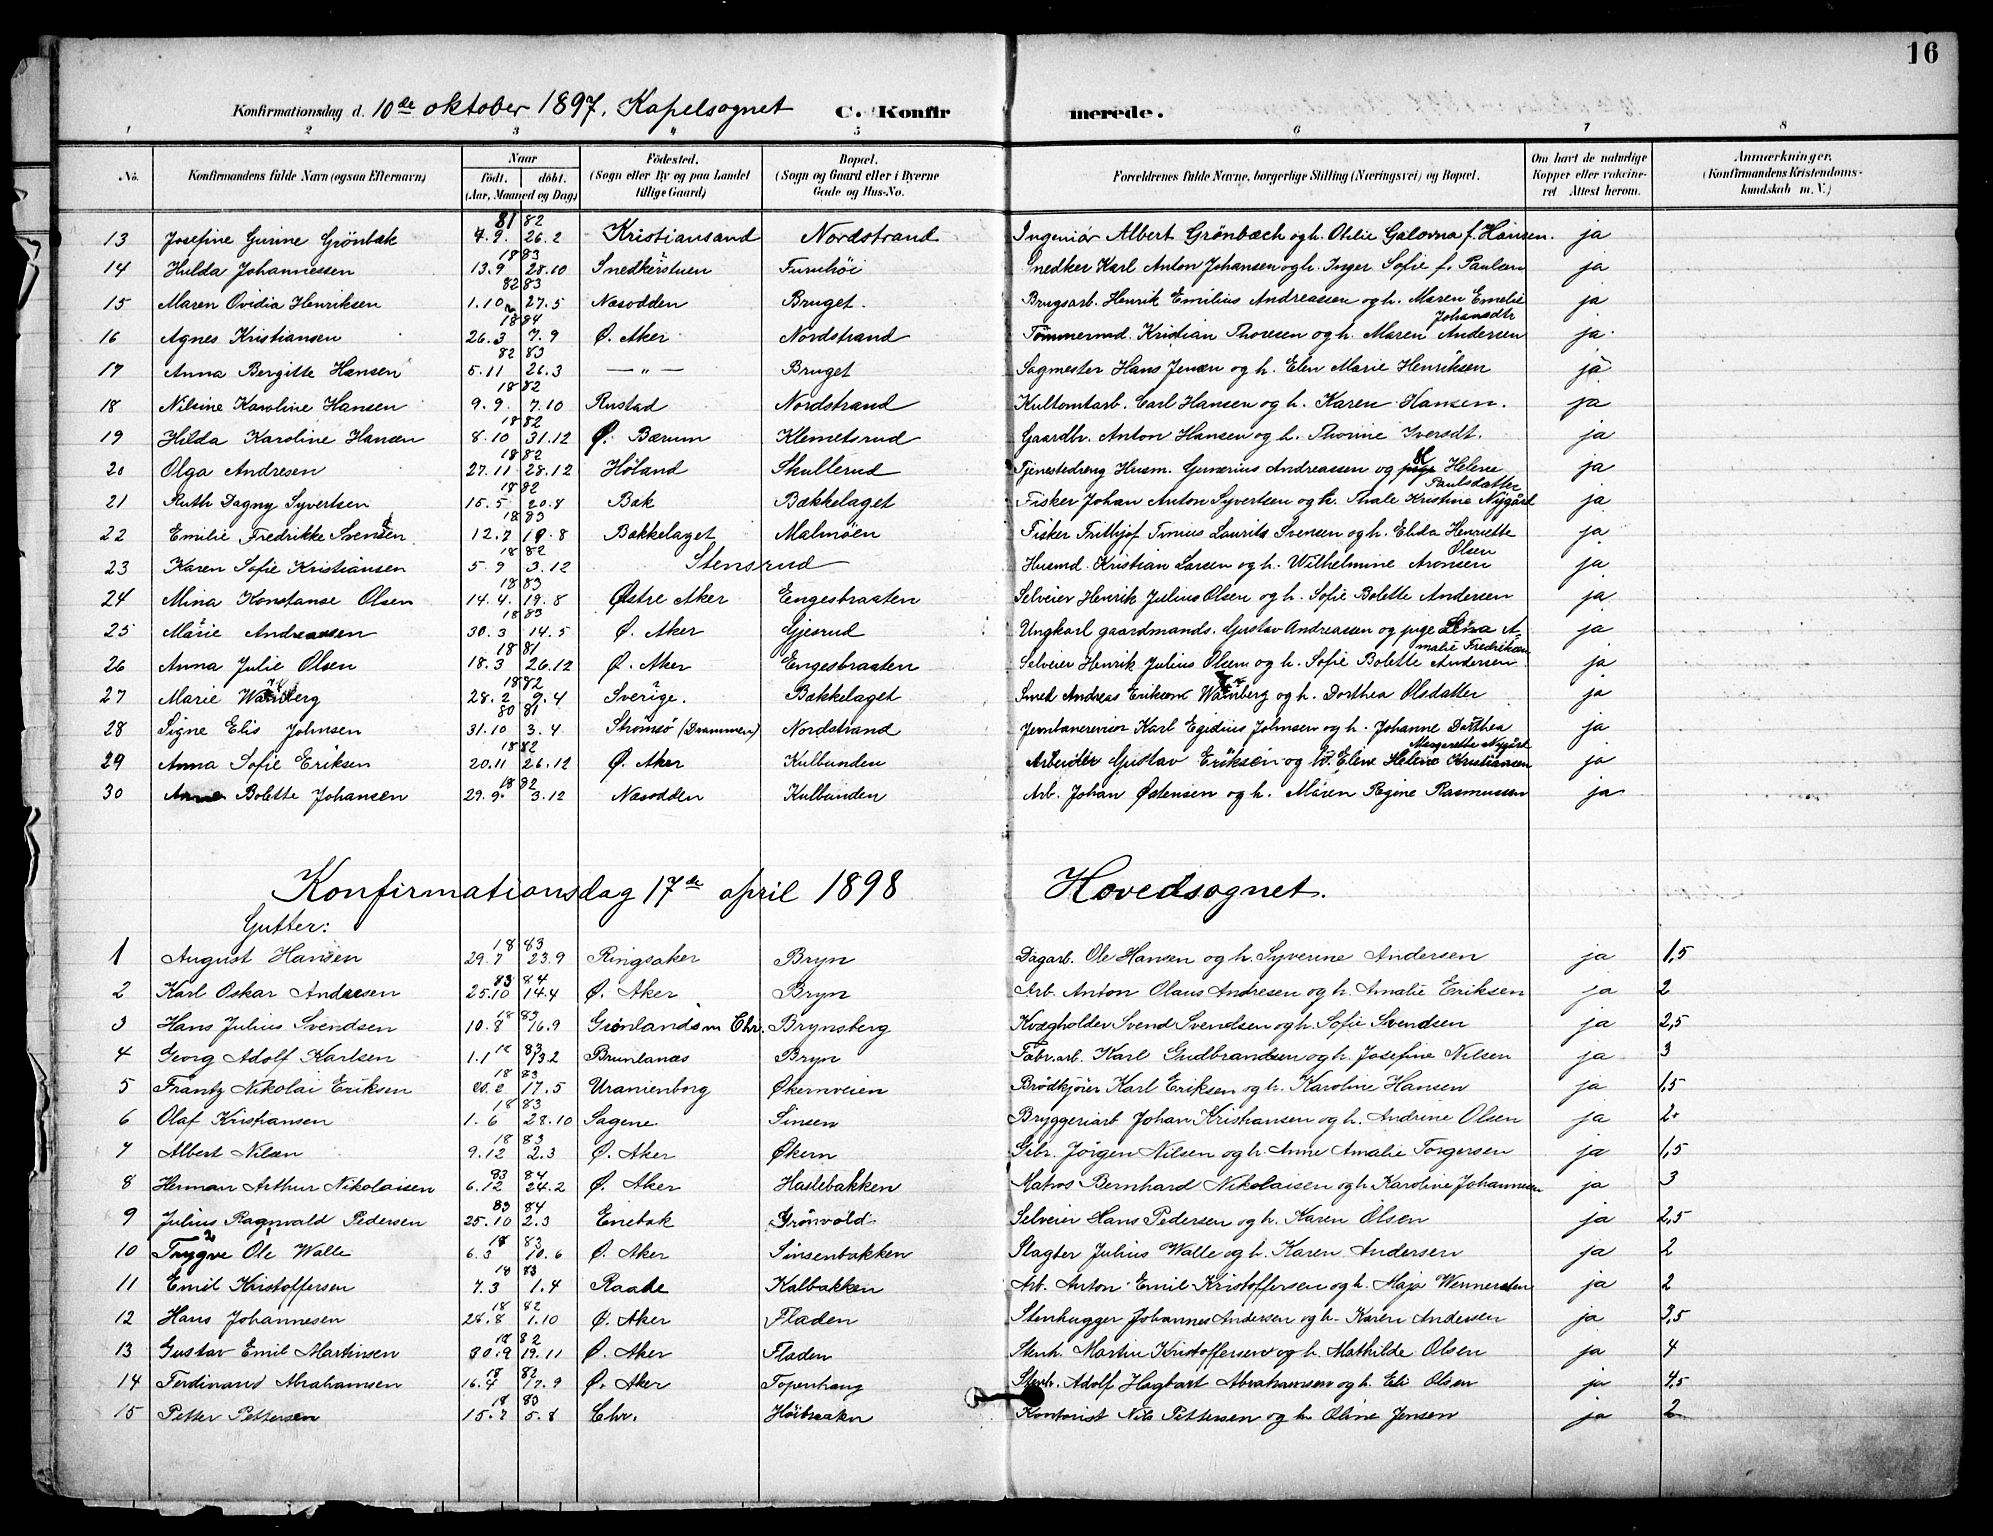 16
Konfirmationsdag d. 10de oktober 1897. Kapelsognet C. Konfirmerede.
1 2 3 4 5 6 7 8
No. Konfirmandens fulde Navn (ogsaa Efternavn) Naar Födt. döbt. (Aar, Maaned og Dag) Födested. (Sogn eller By og paa Landet tillige Gaard) Bopæl. (Sogn og Gaard eller i Byerne Gade og Hus-No. Forældrenes fulde Navne, borgerlige Stilling (Næringsvei) og Bopæl. Om havt de naturlige Kopper eller vakcineret Attest herom. Anmærkninger. (Konfirmandens Kristendomskundskab m. V.)
81 82
13 Josefine Gurine Grönbæk 4.9. 26.2 Kristiansand Nordstrand Ingeniör Albert Grönbæch og h. Otilie Galovna f. Hansen. ja
18 83
14 Hulda Johannessen 13.9 28.10 Snedkerstuen Furuhöi Snedker Karl Anton Johansen og h. Inger Sofie f. Paulsen ja
82 83
15 Maren Ovidia Henriksen 1.10 27.5 Næsodden Bruget. Brugsarb. Henrik Emilius Andreassen og h. Maren Emelie Johansdtr ja
18 84
16 Agnes Kristiansen 26.3 7.9 Ø. Aker Nordstrand Tömmermd. Kristian Thoresen og h. Maren Andersen ja
82 83
17 Anna Bergitte Hansen 5.11 26.3 — " — Bruget Sagmester Hans Jensen og h. Elen Marie Henriksen ja
18 82
18 Nilsine Karoline Hansen 9.9. 7.10 Rustad Nordstrand Kultomtarb. Carl Hansen og h. Karen Hansen. ja
18 82
19 Hilda Karoline Hansen 8.10 31.12 Ø. Bærum Klemetsrud Gaardbr. Anton Hansen og h. Thorine Iversdt. ja
18 82
20 Olga Andresen 27.11 28.12 Høland Skullerud Tjenestedreng Husm. Gunerius Andreassen og pige Helene Paulsdatter ja
18 82
21 Ruth Dagny Syvertsen 15.5 20.8 Bæk Bækkelaget Fisker Johan Anton Syvertsen og h. Thale Kristine Nygård ja
18 83
22 Emilie Fredrikke Svensen 12.7 19.8 Bækkelaget Malmøen Fisker Frithjof Tinius Laurits Svensen og h. Elida Henriette Olsen ja
18 82
23 Karen Sofie Kristiansen 5.9 3.12 Stensrud Husmd. Kristian Larsen og h. Wilhelmine Aronsen ja
18 83
24 Mina Konstanse Olsen 14.4. 19.8 Østre Aker Engesbraaten Selveier Henrik Julius Olsen og h. Sofie Bolette Andersen ja
18 83
25 Marie Andreassen 30.3 14.5 Ø. Aker Gjesrud Ungkarl gaardmands. Gustav Andreassen og pige Lina Amalie Fredriksen ja
18 81
26 Anna Julie Olsen 18.3 26.12 Ø. Aker Engesbraaten Selveier Henrik Julius Olsen og h. Sofie Bolette Andersen ja
18 82
27 Marie Warnberg 28.2 9.4 Sverige. Bækkelaget Smed Andreas Erikson Warnberg og h. Dorthea Olsdatter ja
80 81
28 Signe Elis Johnsen 31.10 3.4 Strömsö (Drammen) Nordstrand Jernbanerevisor Karl Egidius Johnsen og h. Johanne Dorthea Margrethe Nygård ja
18 82
29 Anna Sofie Eriksen 20.11 26.12 Ø. Aker Kulbunden Arbeider Gustav Eriksen og h. Eline Helene Kristiansen ja
18 82
30 Bolette Johansen 29.9. 3.12 Næsodden Kulbunden Arb. Johan Østensen og h. Maren Regine Rasmussen ja
Konfirmationsdag 17de april 1898 Hovedsognet.
Gutter:
18 83
1 August Hansen 29.7 23.9 Ringsaker Bryn Dagarb. Ole Hansen og h. Syverine Andersen ja 1,5
83 84
2 Karl Oskar Andresen 25.10 14.4 Ø. Aker Bryn Arb. Anton Olaus Andresen og h. Amalie Eriksen ja 2
18 83
3 Hans Julius Svendsen 10.8 16.9 Grönlands m Chr. Brynsberg Kvægholder Svend Svendsen og h. Sofie Svendsen ja 2,5
18 83
4 Georg Adolf Karlsen 1.1 Brunlanæs Bryn Fabr.arb. Karl Gudbrandsen og h. Josefine Nilsen ja 3
18 83
5 Frantz Nikolai Eriksen 17.5 Uranienborg Økernveien Brödkjörer Karl Eriksen og h. Karoline Hansen ja 1,5
18 83
6 Olaf Kristiansen 1.6 28.10 Sagene Sinsen Bryggeriarb Johan Kristiansen og h. Andrine Olsen ja 2
18 83
7 Albert Nilsen 9.12 2.3 Ø. Aker Økern Gibr. Jörgen Nilsen og h. Anne Amalie Torgersen ja 1,5
83 84
8 Herman Arthur Nikolaisen 6.12 24.2 Ø. Aker Haslebakken Matros Bernhard Nikolaisen og h. Karoline Johannesen ja 3
83 84
9 Julius Ragnvald Pedersen 25.10 2.3 Enebak Grönvold Selveier Hans Pedersen og h. Karen Olsen ja 2,5
18 83
10 Trygve Ole Walle 6.3 10.6 Ø. Aker Sinsenbakken Slagter Julius Walle og h. Karen Andersen ja 2
18 83
11 Emil Kristoffersen 7.3 1.4 Raade Kalbakken Arb. Anton Emil Kristoffersen og h. Maja Wennersten ja 2
18 82
12 Hans Johannesen 28.8 1.10 Ø. Aker Fladen Stenhugger Johannes Andersen og h. Karen Andersen ja 3,5
18 82
13 Gustav Emil Martinsen 30.9 19.11 Ø. Aker Fladen Stenh. Martin Kristoffersen og h. Mathilde Olsen ja 4
18 82
14 Ferdinand Abrahamsen 16.4 17.9 Ø. Aker Topenhaug Stenh. Adolf Hagbart Abrahamsen og h. Eli Olsen ja 4,5
18 83
15 Petter Pettersen 15.2 5.8 Chr. Höibraaten Kontorist Nils Pettersen og h. Oline Jensen ja 2